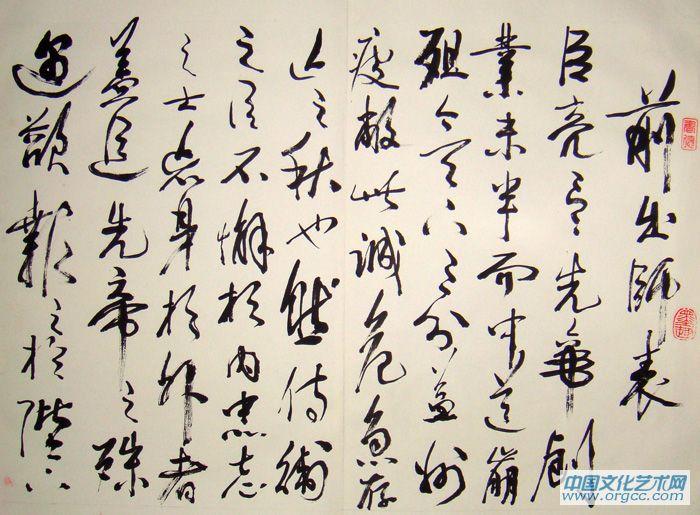 前出師表
臣亮言先帝創
業未半而中道崩
殂今天下三分益州
疲敝此誠危急存
亡之秋也然侍衛
之臣不懈於內忠志
之士忘身於外者
蓋追先帝之殊
遇欲報之於陛下
中国文化艺术网
www.orgcc.com